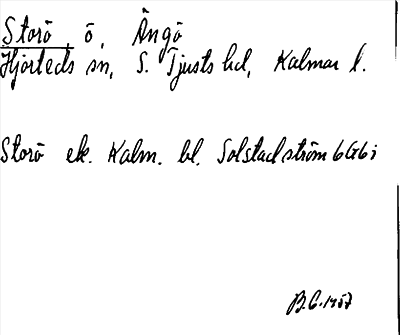 Storö ö, Ängö
Hjorteds sn, S. Tjusts hd, Kalmar l.
Storö ek. Kalm. bl. Solstadström 6G6i
B.G. 1957